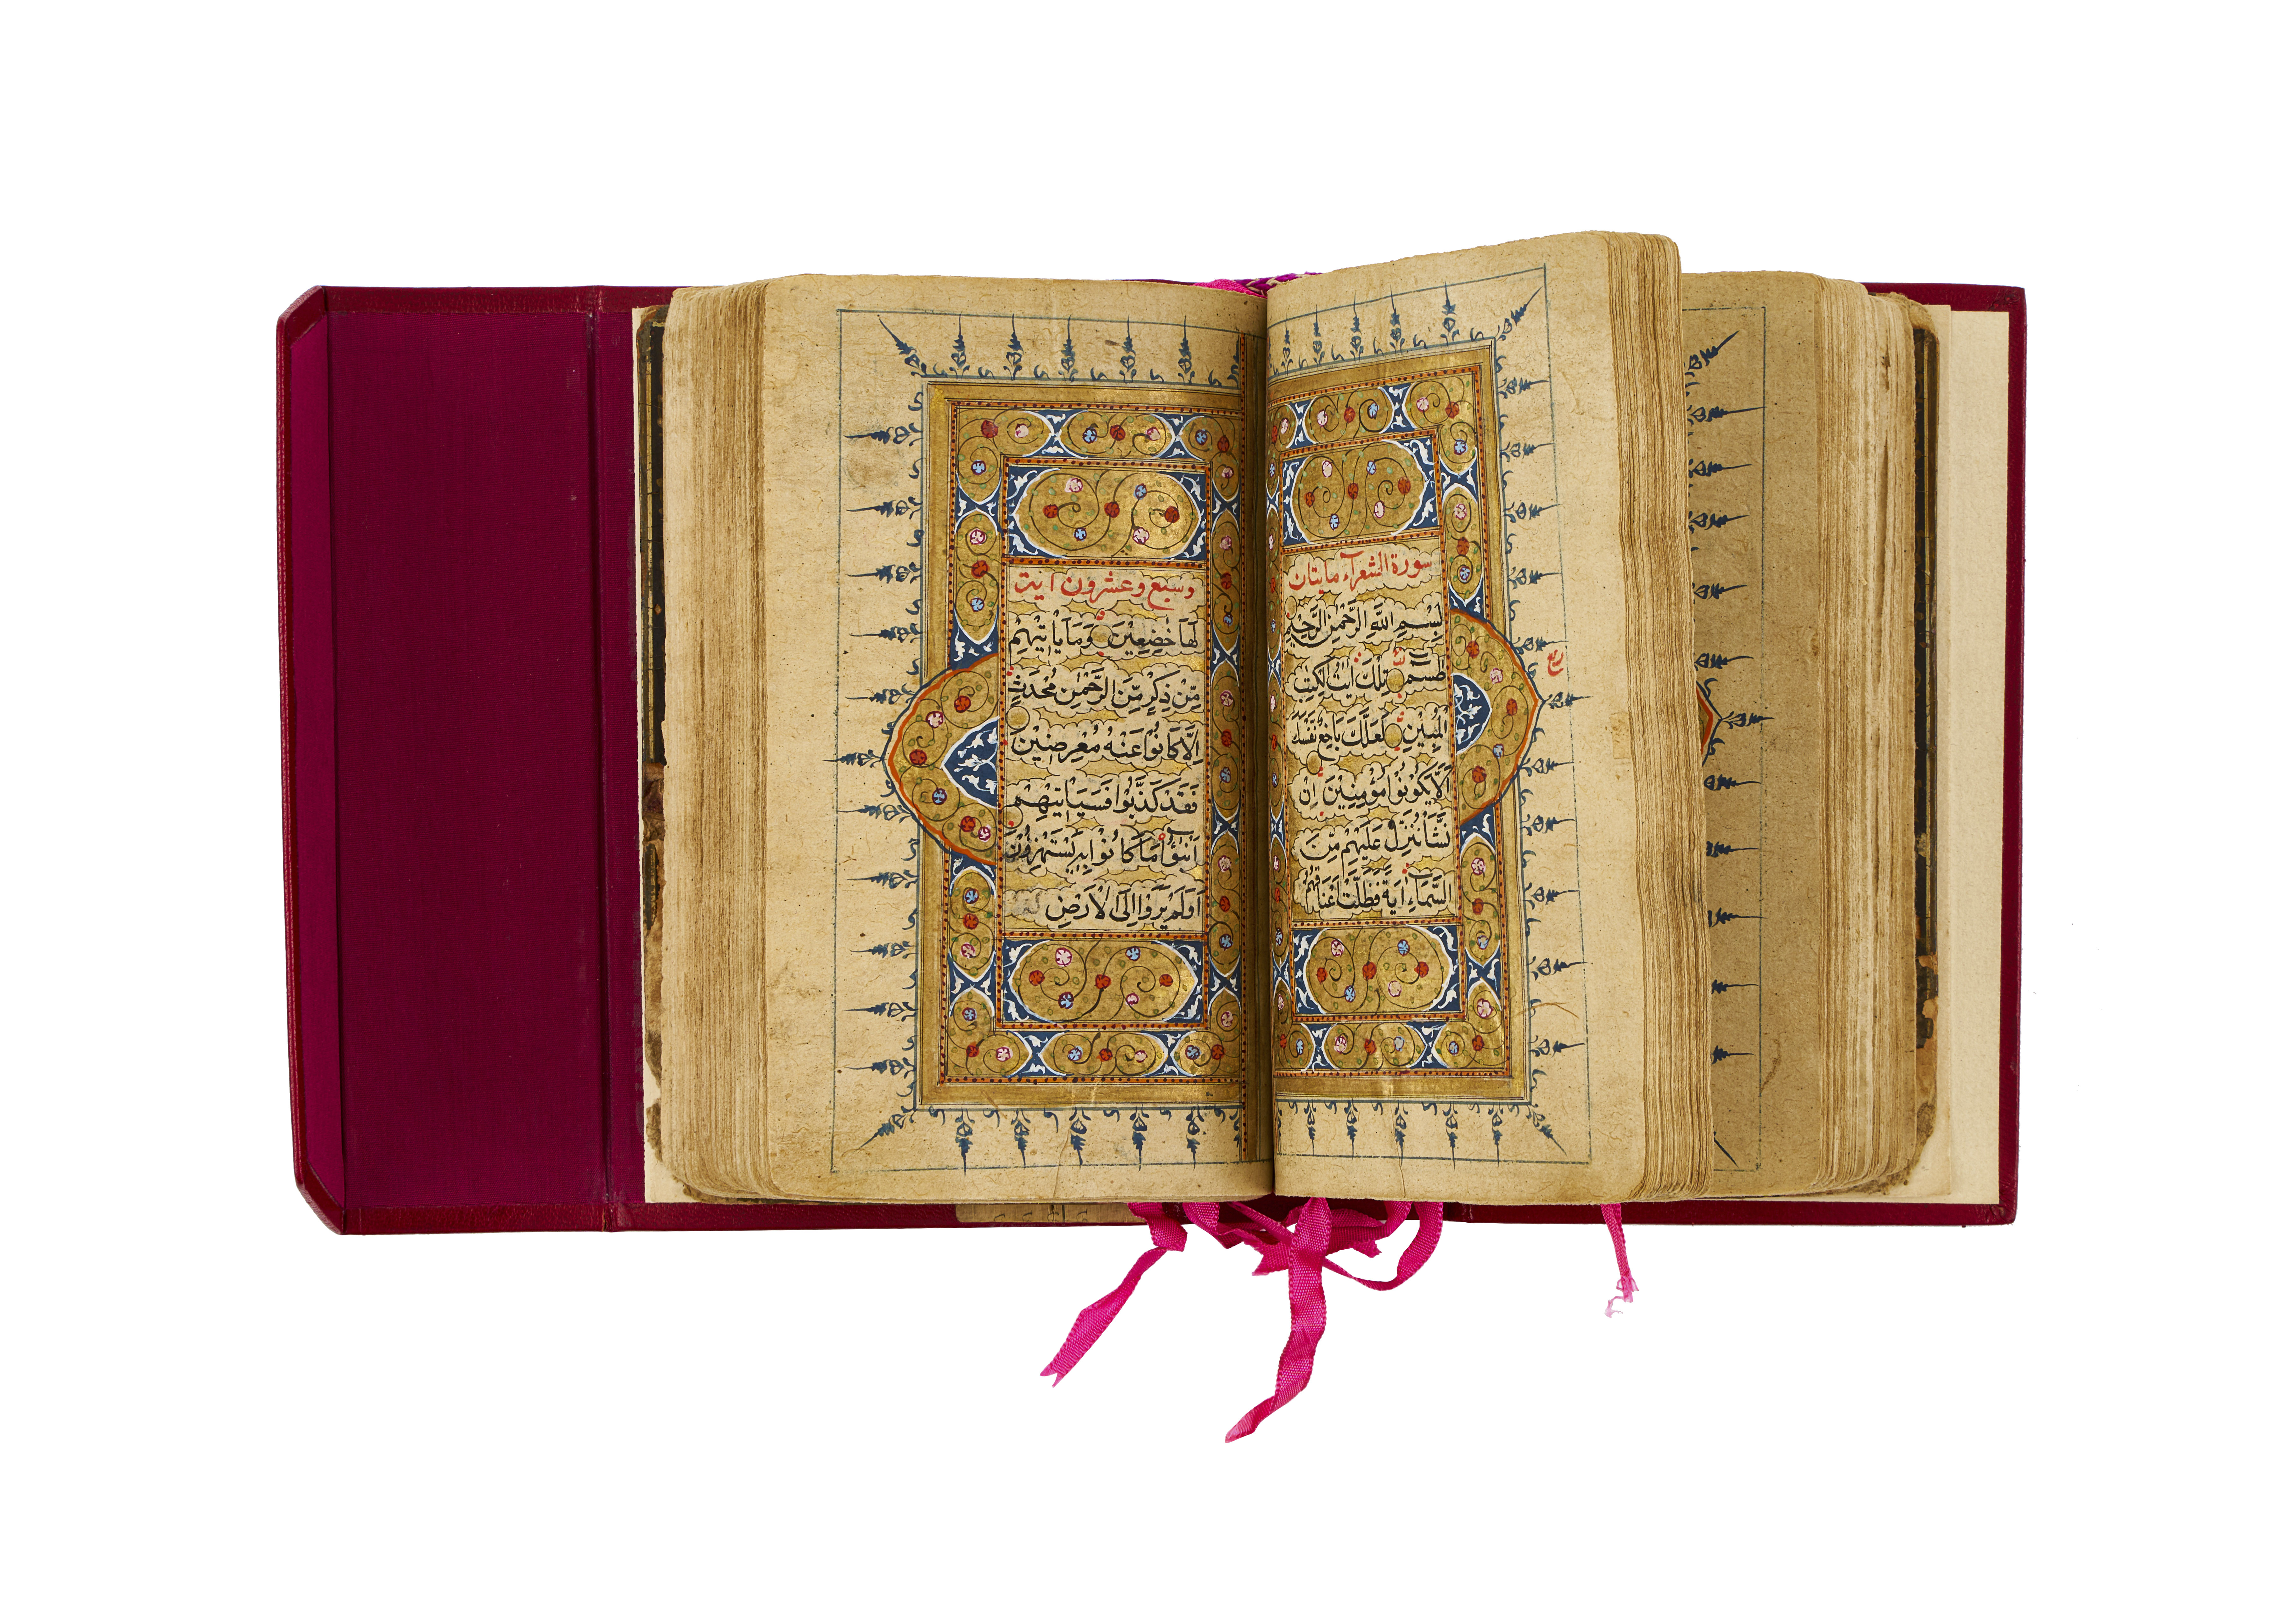 سورة الشعرآء مايتان
بِسْمِ اللَّهِ الرَّحْمٰنِ الرَّحِيْمِ
طٰسم تِلْكَ اٰيٰتُ الْكِتٰبِ
الْمُبِيْنِ لَعَلَّكَ بَاخِعٌ نَفْسَكَ
اَلَّا يَكُوْنُوْا مُؤْمِنِيْنَ اِنْ
نَّشَاْ نُنَزِّلْ عَلَيْهِمْ مِّنَ
السَّمَآءِ اٰيَةً فَظَلَّتْ اَعْنَاقُهُمْ
ربع
وسبع وعشرون ايت
لَهَا خٰضِعِيْنَ وَمَا يَاْتِيْهِمْ
مِّنْ ذِكْرٍ مِّنَ الرَّحْمٰنِ مُحْدَثٍ
اِلَّا كَانُوْا عَنْهُ مُعْرِضِيْنَ
فَقَدْ كَذَّبُوْا فَسَيَاْتِيْهِمْ
اَنْبٰٓؤُا مَا كَانُوْا بِهٖ يَسْتَهْزِؤُنَ
اَوَلَمْ يَرَوْا اِلَى الْاَرْضِ كَمْ